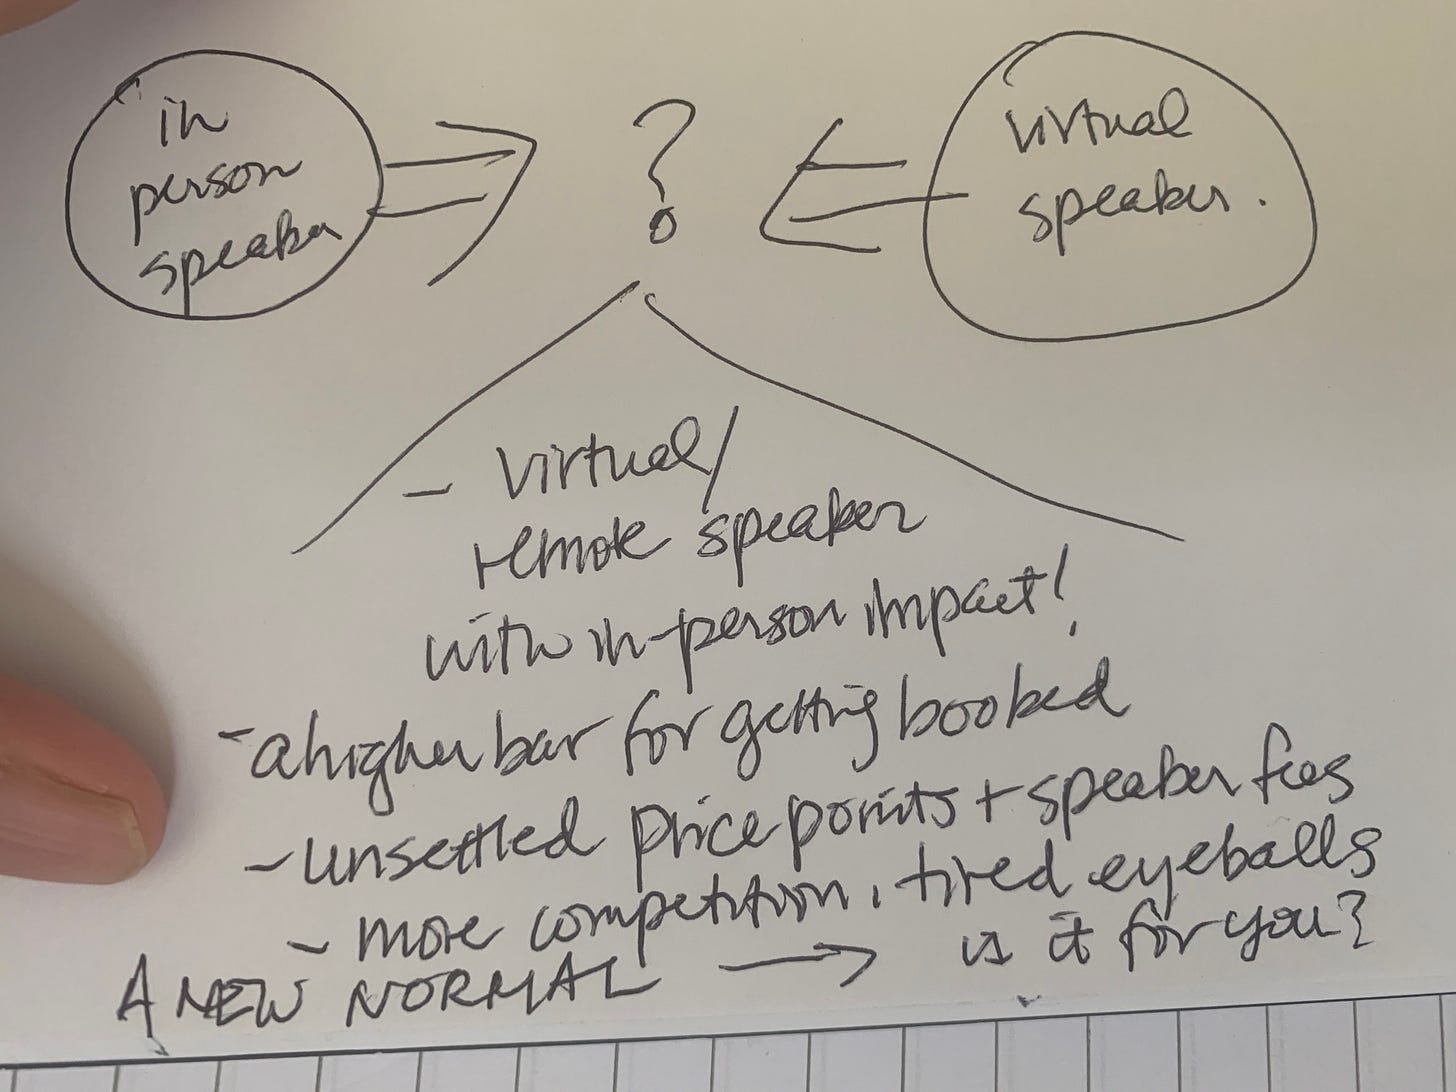 in
person
speaker
?
virtual
speaker.
- virtual/
remote speaker
with in-person impact!
- a higher bar for getting booked
- unsettled price points + speaker fees
- more competition, tired eyeballs
A NEW NORMAL → is it for you?